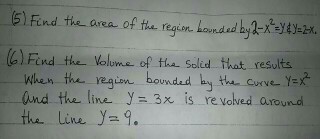 (5) Find the area of the region bounded by 2-x²=y & y=2-x.
(6) Find the Volume of the Solid that results
when the region bounded by the curve y=x²
and the line y=3x is revolved around
the line y=9.